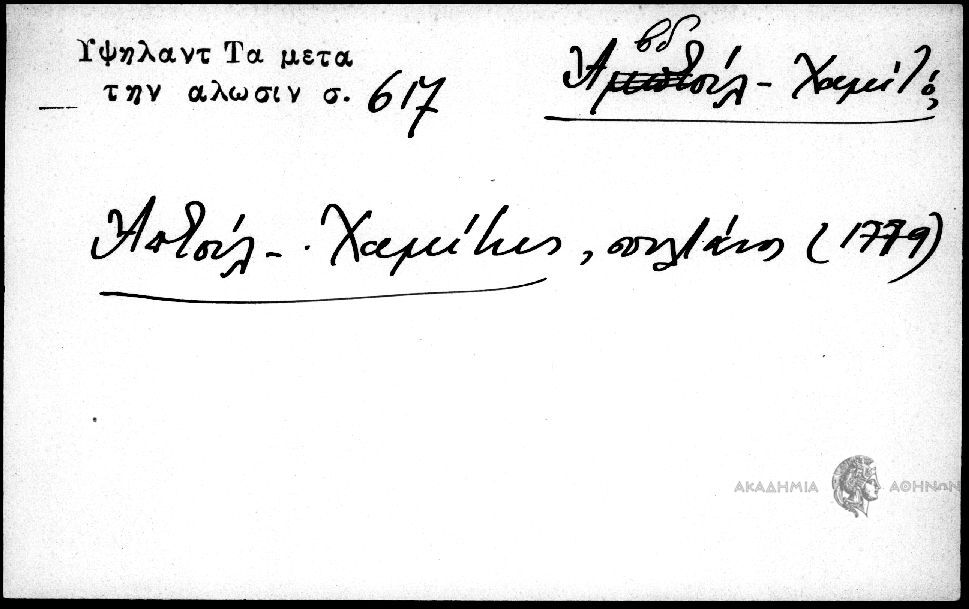 Υψηλαντ Τα μετα
την αλωσιν σ. 617
Αβδούλ - Χαμίτ
Απτούλ - Χαμίτης, σουλτάνος (1779)
ΑΚΑΔΗΜΙΑ ΑΘΗΝΩΝ